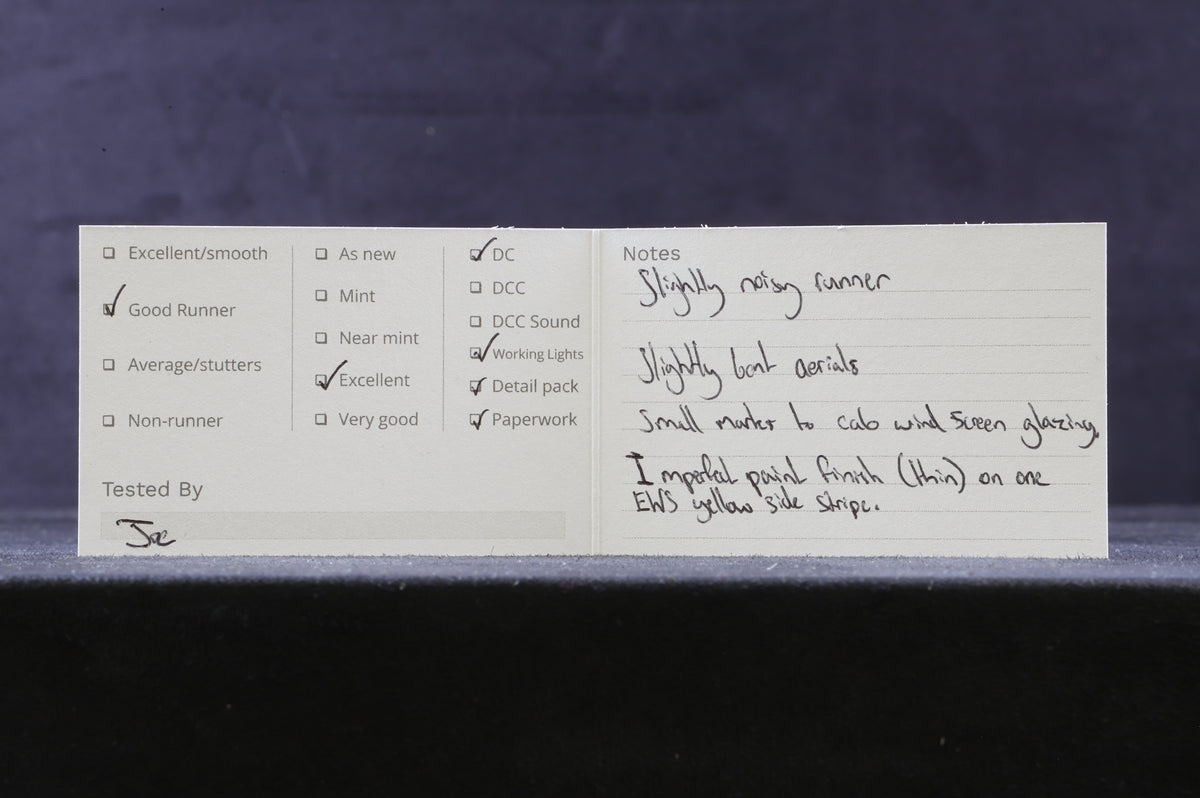 Excellent/smooth
Good Runner
Average/stutters
Non-runner
As new
Mint
Near mint
Excellent
Very good
DC
DCC
DCC Sound
Working Lights
Detail pack
Paperwork
Tested By
Joe
Notes
Slightly noisy runner
Slightly bent aerials
Small marks to cab wind screen glazing.
Imperfect paint finish (thin) on one
EWS yellow side stripe.